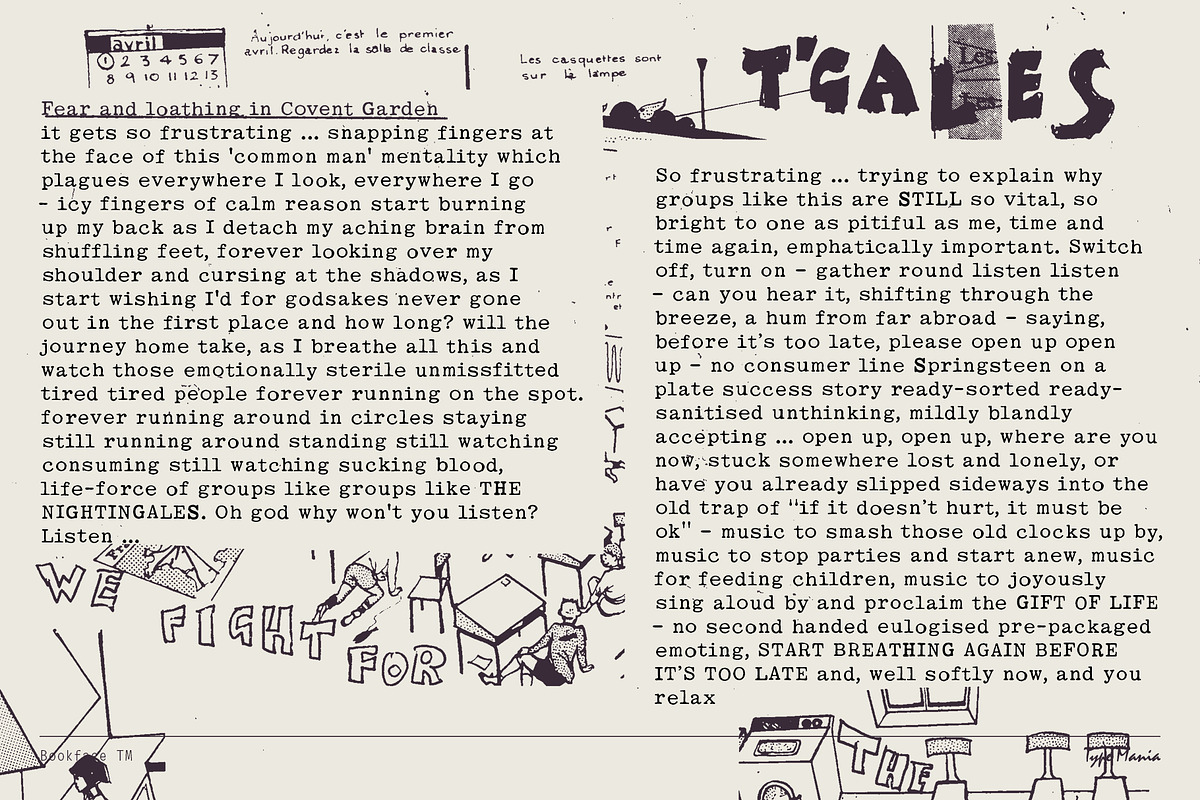 avril
1 2 3 4 5 6 7
8 9 10 11 12 13
Aujourd'hui, c'est le premier
avril. Regardez la salle de classe
Les casquettes sont
sur la lampe
T'GALES
Les
Fear and loathing in Covent Garden
it gets so frustrating ... snapping fingers at
the face of this 'common man' mentality which
plagues everywhere I look, everywhere I go
- icy fingers of calm reason start burning
up my back as I detach my aching brain from
shuffling feet, forever looking over my
shoulder and cursing at the shadows, as I
start wishing I'd for godsakes never gone
out in the first place and how long? will the
journey home take, as I breathe all this and
watch those emotionally sterile unmissfitted
tired tired people forever running on the spot.
forever running around in circles staying
still running around standing still watching
consuming still watching sucking blood,
life-force of groups like groups like THE
NIGHTINGALES. Oh god why won't you listen?
Listen ...
WE
FIGHT
FOR
So frustrating ... trying to explain why
groups like this are STILL so vital, so
bright to one as pitiful as me, time and
time again, emphatically important. Switch
off, turn on - gather round listen listen
- can you hear it, shifting through the
breeze, a hum from far abroad - saying,
before it's too late, please open up open
up - no consumer line Springsteen on a
plate success story ready-sorted ready-
sanitised unthinking, mildly blandly
accepting ... open up, open up, where are you
now, stuck somewhere lost and lonely, or
have you already slipped sideways into the
old trap of "if it doesn't hurt, it must be
ok" - music to smash those old clocks up by,
music to stop parties and start anew, music
for feeding children, music to joyously
sing aloud by and proclaim the GIFT OF LIFE
- no second handed eulogised pre-packaged
emoting, START BREATHING AGAIN BEFORE
IT'S TOO LATE and, well softly now, and you
relax
THE
Bookface TM
Type Mania